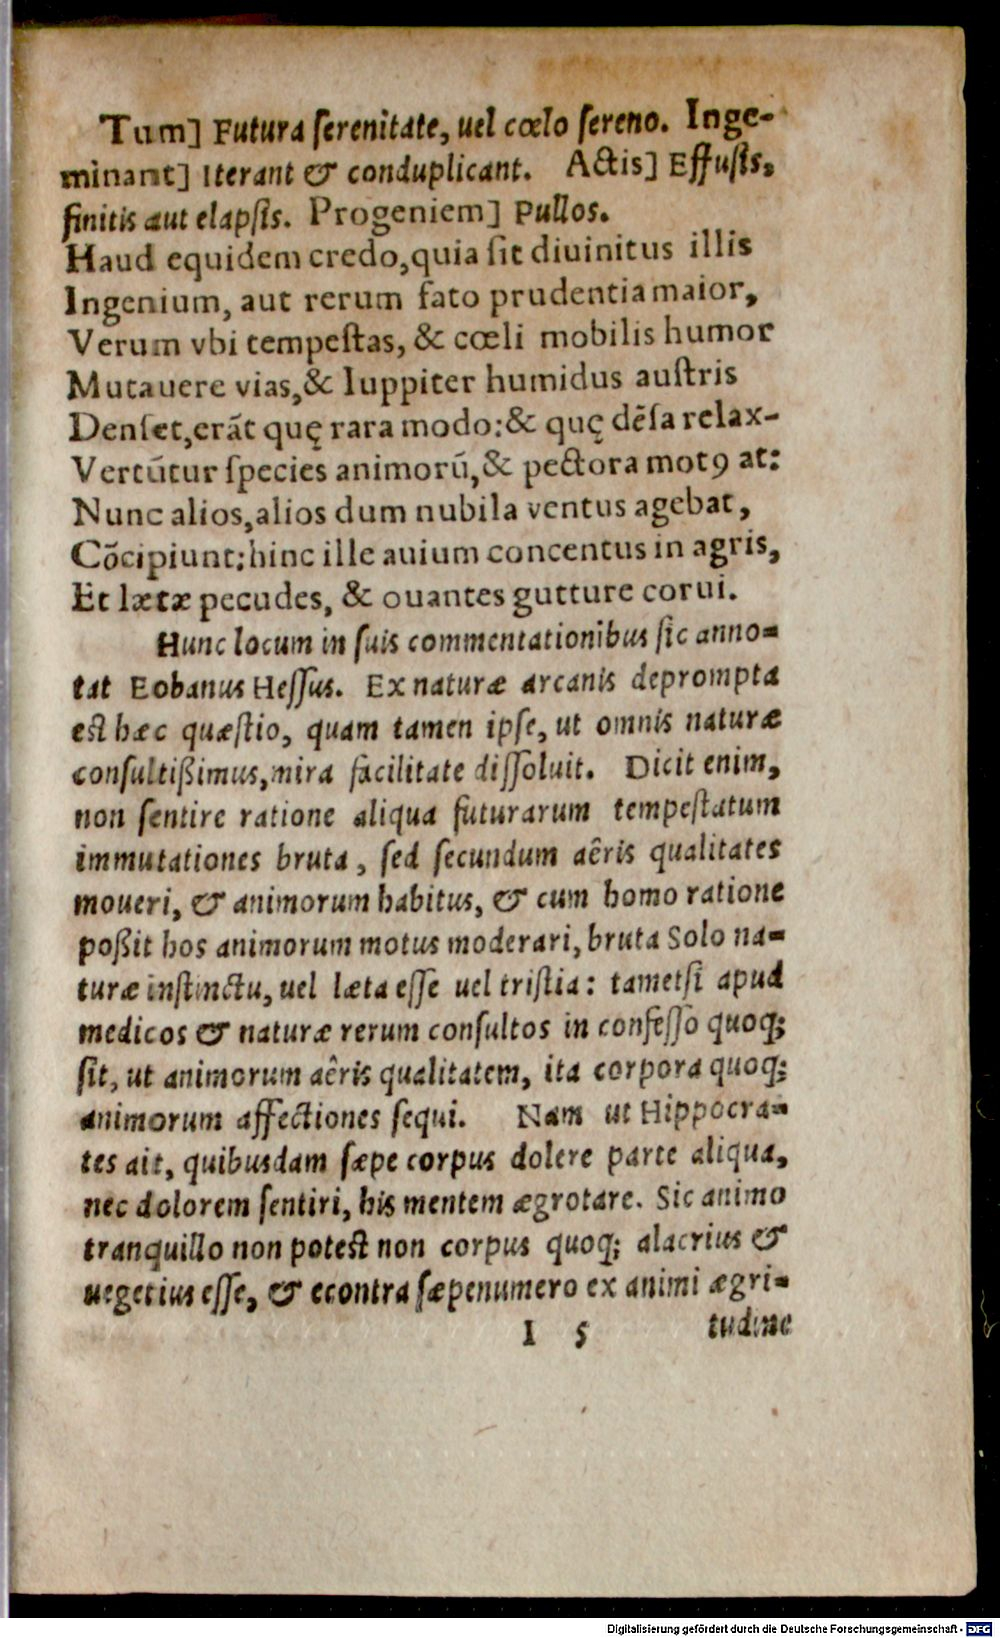 Tum] Futura ſerenitate, uel cœlo ſereno. Inge-
minant] Iterant & conduplicant. Actis] Effuſis,
finitis aut elapſis. Progeniem] Pullos.
Haud equidem credo, quia ſit diuinitus illis
Ingenium, aut rerum fato prudentia maior,
Verum vbi tempeſtas, & cœli mobilis humor
Mutauere vias, & Iuppiter humidus auſtris
Denſet, erãt quę rara modo: & quę dẽſa relax-
Vertũtur ſpecies animorũ, & pectora motꝰ at:
Nunc alios, alios dum nubila ventus agebat,
Cõcipiunt: hinc ille auium concentus in agris,
Et lætæ pecudes, & ouantes gutture corui.
Hunc locum in ſuis commentationibus ſic anno-
tat Eobanus Heſſus. Ex naturæ arcanis deprompta
est hæc quæſtio, quam tamen ipſe, ut omnis naturæ
conſultißimus, mira facilitate diſſoluit. Dicit enim,
non ſentire ratione aliqua futurarum tempeſtatum
immutationes bruta, ſed ſecundum aêris qualitates
moueri, & animorum habitus, & cum homo ratione
poßit hos animorum motus moderari, bruta Solo na-
turæ inſtinctu, uel læta eſſe uel triſtia: tametſi apud
medicos & naturæ rerum conſultos in confeſſo quoq;
ſit, ut animorum aêris qualitatem, ita corpora quoq;
animorum affectiones ſequi. Nam ut Hippocra-
tes ait, quibusdam ſæpe corpus dolere parte aliqua,
nec dolorem ſentiri, his mentem ægrotare. Sic animo
tranquillo non potest non corpus quoq; alacrius &
uegetius eſſe, & econtra ſæpenumero ex animi ægri-
I 5 tudine
Digitalisierung gefördert durch die Deutsche Forschungsgemeinschaft - DFG